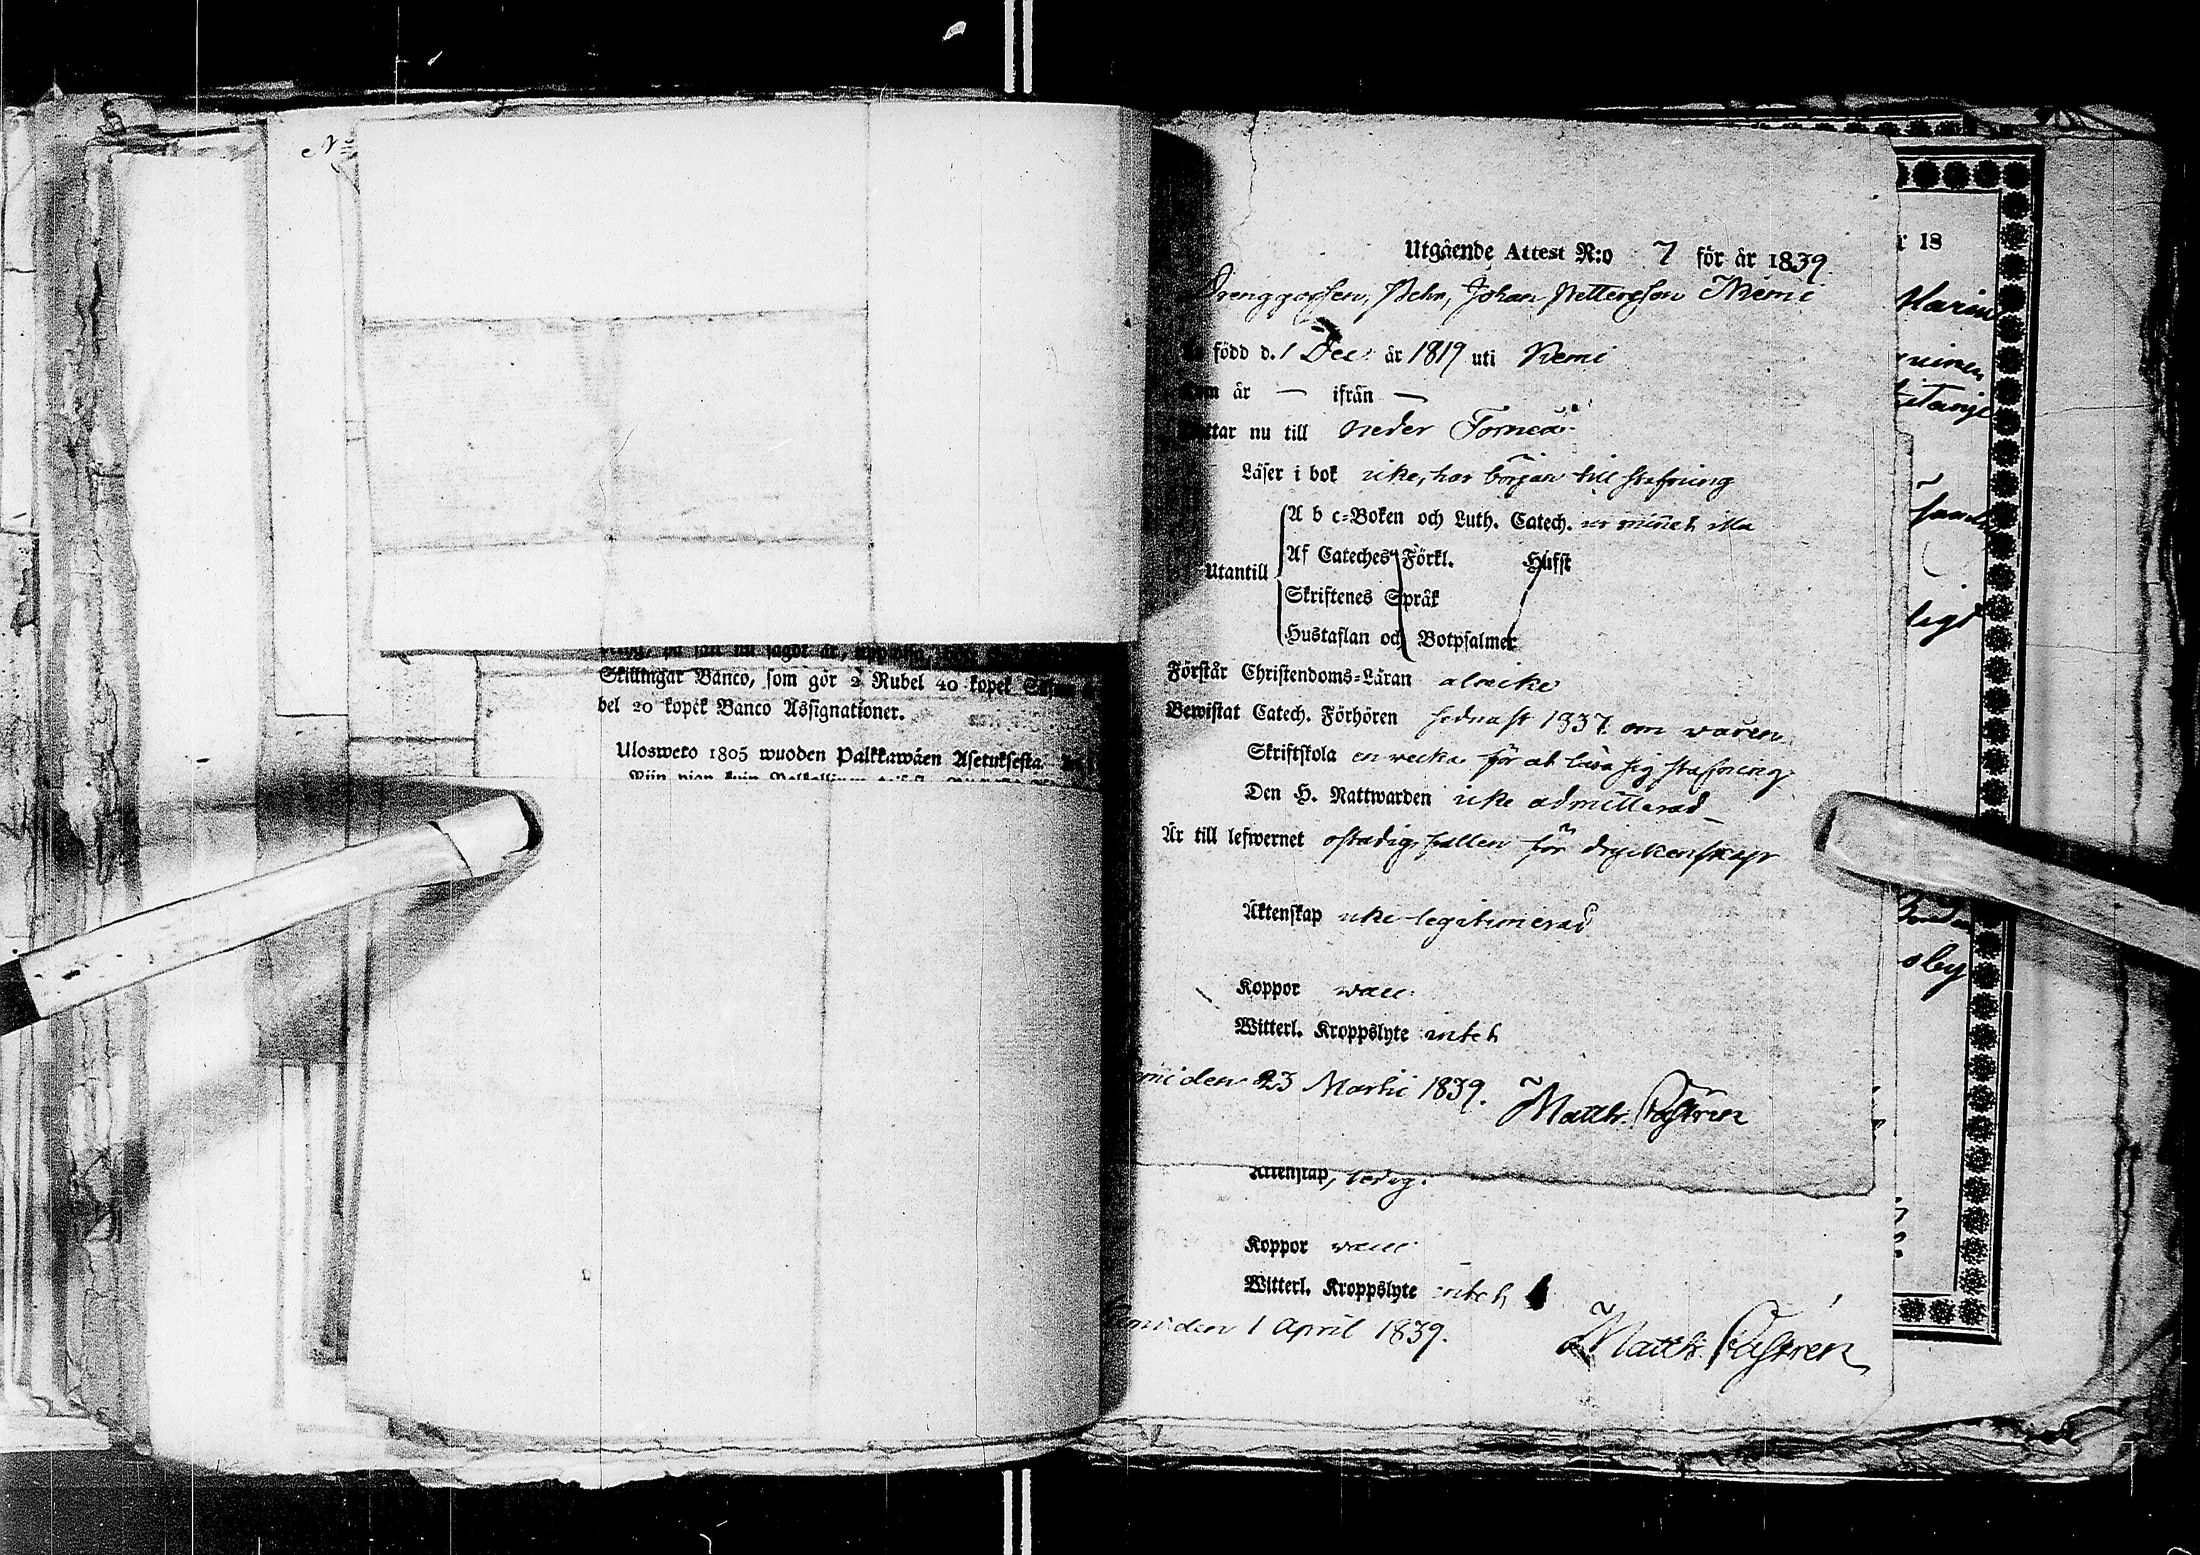 N:o
Skillingar Banco, som gör 2 Rubel 40 kopek
bel 20 kopek Banco Assignationer.
Ulosweto 1805 wuoden Palkkawäen Asetuksesta.
Utgående Attest N:o 7 för år 1839
Drenggossen, Johan Pettersson
född d. 1 Dec. är 1819 uti Kemi
är — ifrån —
nu till Neder Torneå
Läser i bok icke, har börjat till stafning
A b c-Boken och Luth. Catech. ur minnet illa
Af Cateches Förkl. Hufst
Utantill
Skriftenes Språk
Hustaflan och Botpsalmer
Förstår Christendoms-Läran alsicke
Bewistat Catech. Förhören sednast 1837. om waren
Skriftskola en wecka för at lära sig stafning
Den H. Nattwarden icke admitterad
Är till lefwernet ostadig, fallen för dryckenskap
Äktenskap icke legitimerad
Koppor
Witterl. Kroppslyte intet
den 23 Martii 1839. Matth. Castrén
Äktenskap, ledig.
Koppor
Witterl. Kroppslyte intet
den 1 April 1839.
Matth. Castrén
r 18
ligt
by